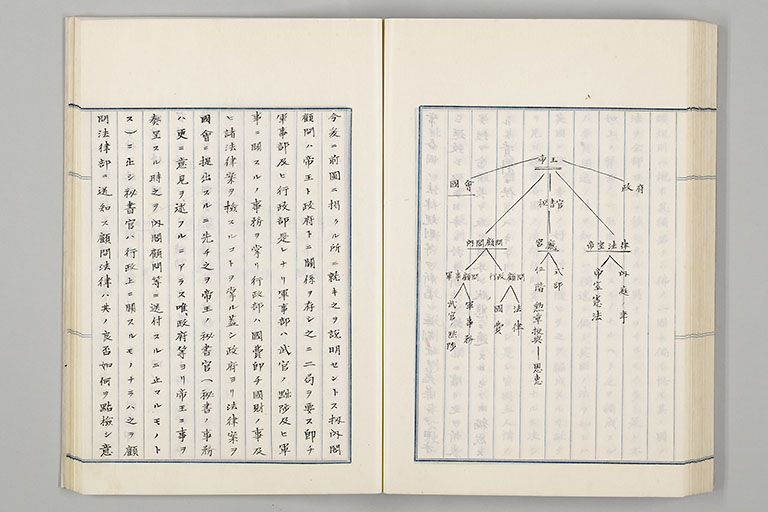 帝王
國會
政府
秘書官
内閣顧問
官廳
帝室法律
軍事顧問
行政顧問
式部
位階
勲章授與―恩惠
内庭ノ事
帝室憲法
軍事務
武官ノ黜陟
法律
國費
今爰ニ前圖ニ掲クル所ニ就キ之ヲ説明セントス扨内閣
顧問ハ帝王ト政府トニ關係ヲ有シ之ニ二局ヲ要ス即チ
軍事部及ヒ行政部是レナリ軍事部ハ武官ノ黜陟及ヒ軍
事ニ關スルノ事務ヲ掌リ行政部ハ國費即チ國財ノ事及
ヒ諸法律案ヲ檢スルコトヲ掌ル蓋シ政府ヨリ法律案ヲ
國會ニ提出スルニ先チ之ヲ帝王ノ秘書官(秘書ノ事務
ハ更ニ意見ヲ述フルニアラス唯政府等ヨリ帝王ニ事ヲ
奏呈スル時之ヲ内閣顧問等ニ送付スルニ止マルモノト
ス)ニ正シ秘書官ハ行政上ニ關スルモノナラハ之ヲ顧
問法律部ニ送知ス顧問法律ハ其ノ良否如何ヲ點檢シ意